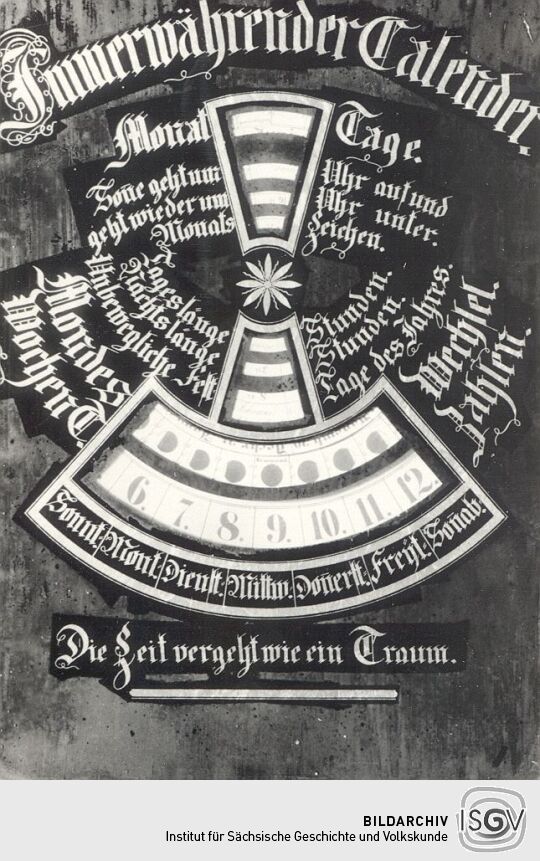 Immerwährender Calender.
Monat Tage.
Soñe geht um Uhr auf und
geht wieder um Uhr unter.
Monats Zeichen.
Tageslänge Stunden.
Nachtslänge Stunden.
Unbewegliche Fest Tage des Jahres.
Mondes Wechsel.
Wochen T. Zahlen.
6. 7. 8. 9. 10. 11. 12.
Sonnt. Mont. Dienst. Mittw. Doñerst. Freyt. Sonab.
Die Zeit vergeht wie ein Traum.
BILDARCHIV
Institut für Sächsische Geschichte und Volkskunde
ISGV